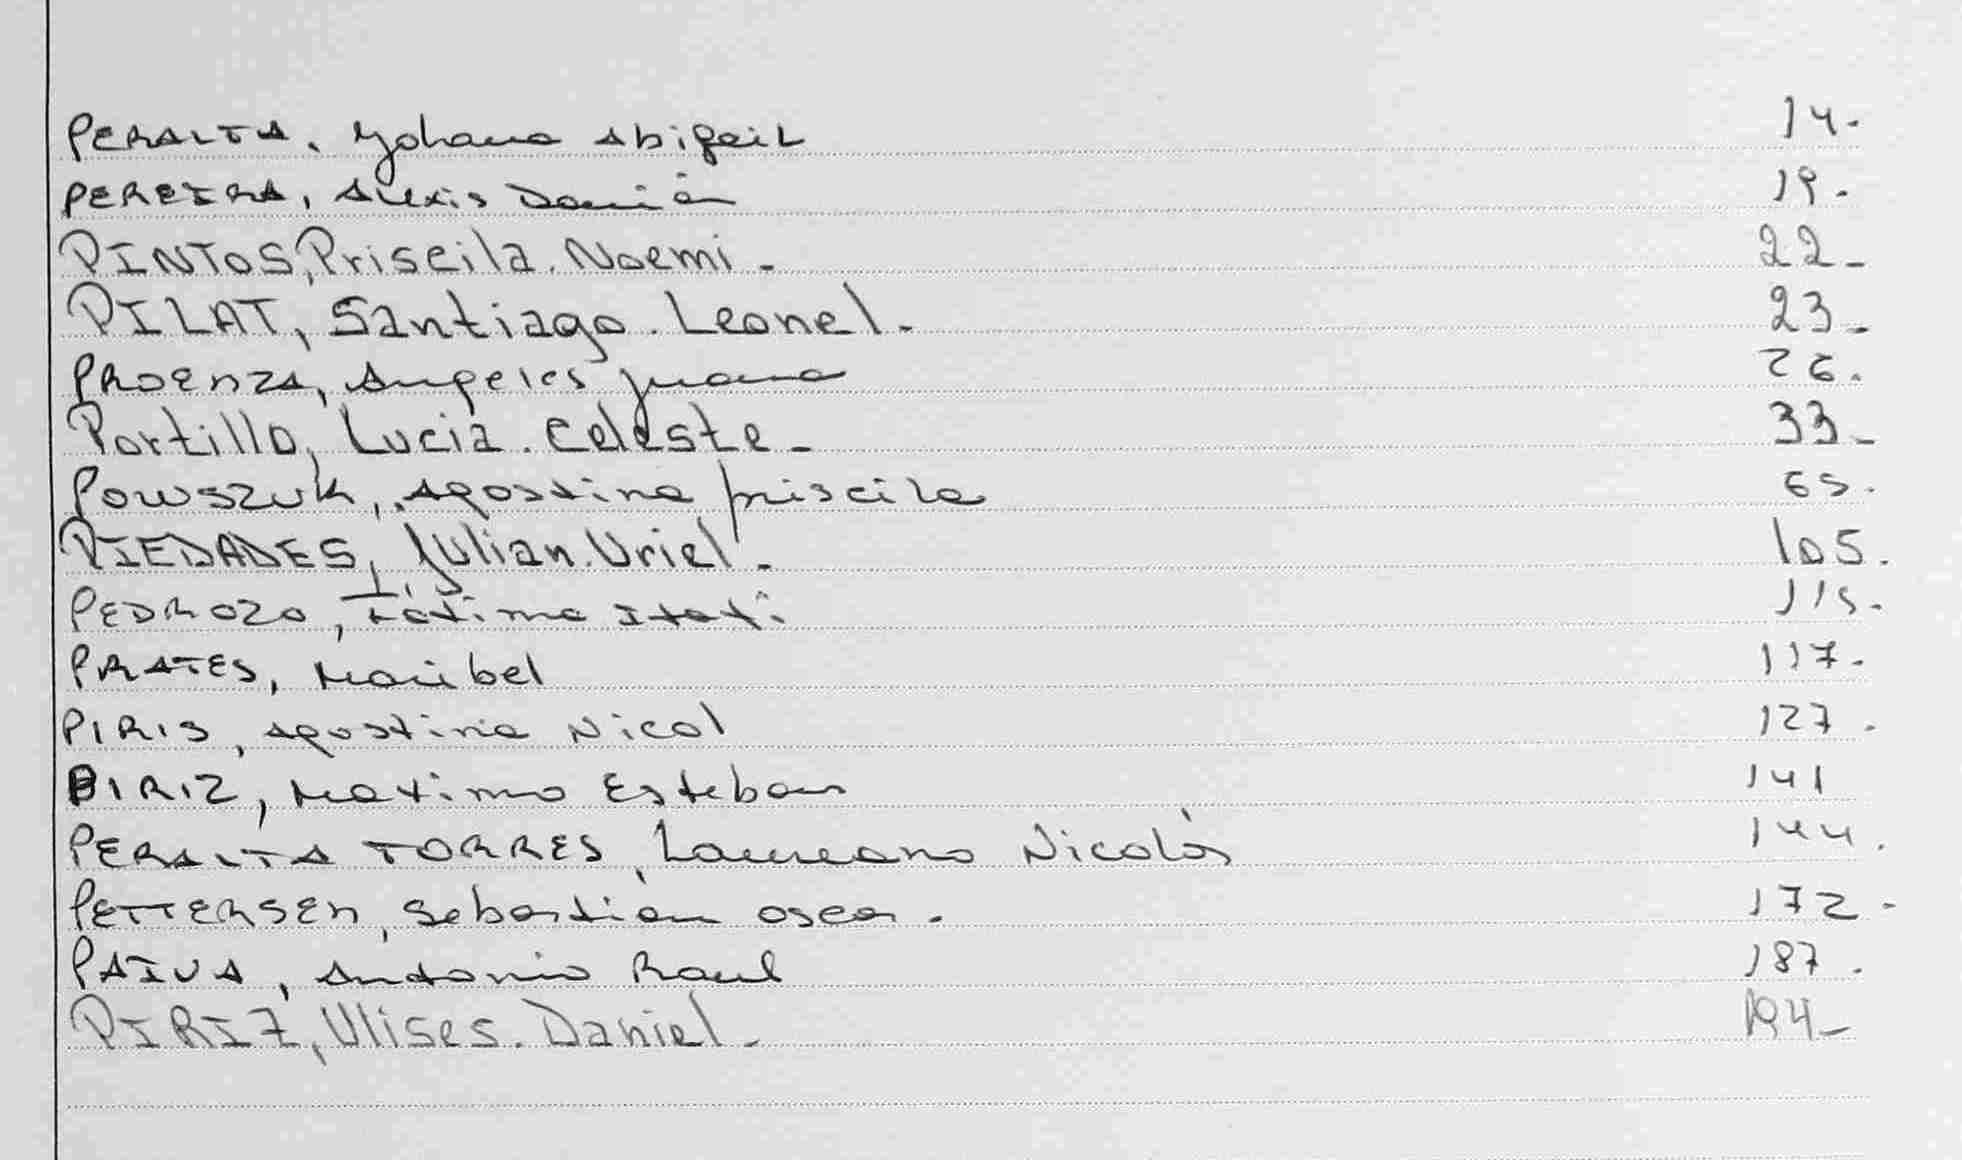 PERALTA, Yohana Abigail 14.
PEREIRA, Alexis Damián 19.
PINTOS, Priscila. Noemi. 22-
PILAT, Santiago. Leonel. 23-
PROENZA, Angeles Juana 26.
Portillo, Lucia. Celeste- 33-
Powszuk, Agostina priscila 65.
PIEDADES, Julian. Uriel. 105.
PEDROZO, Fátima Itatí 115.
PRATES, Maribel 117.
PIRIS, Agostina Nicol 127.
PIRIZ, Maximo Esteban 141
PERALTA TORRES, Laureano Nicolás 144.
PETTERSEN, Sebastián oscar. 172-
PAIVA, Antonio Raul 187.
PIRIZ, Ulises. Daniel- 194-